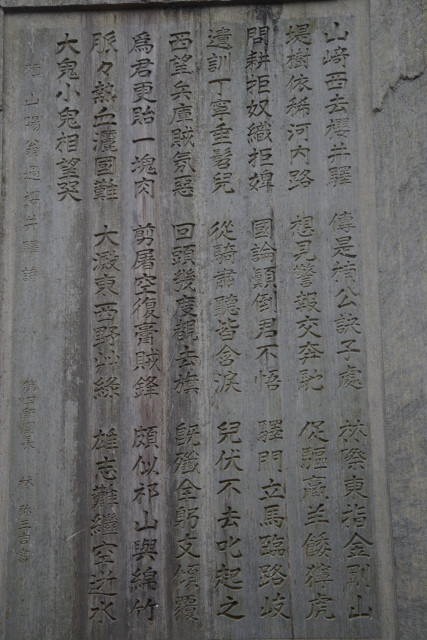 山﨑西去櫻井驛　傳是楠公訣子處　林際東指金剛山
堤樹依稀河内路　想見警報交奔馳　促驅羸羊餧獰虎
問耕拒奴織拒婢　國論顛倒君不悟　驛門立馬臨路岐
遺訓丁寧垂髫兒　從騎肅聽皆含淚　兒伏不去叱起之
西望兵庫賊氛惡　回頭幾度覩去旗　既殲全躬支傾覆
爲君更貽一塊肉　剪屠空復膏賊鋒　頗似祁山與綿竹
脈々熱血灑國難　大澱東西野艸綠　雄志難繼空逝水
大鬼小鬼相望哭
頼山陽翁過櫻井驛詩　第四師團長　林　弥三吉書